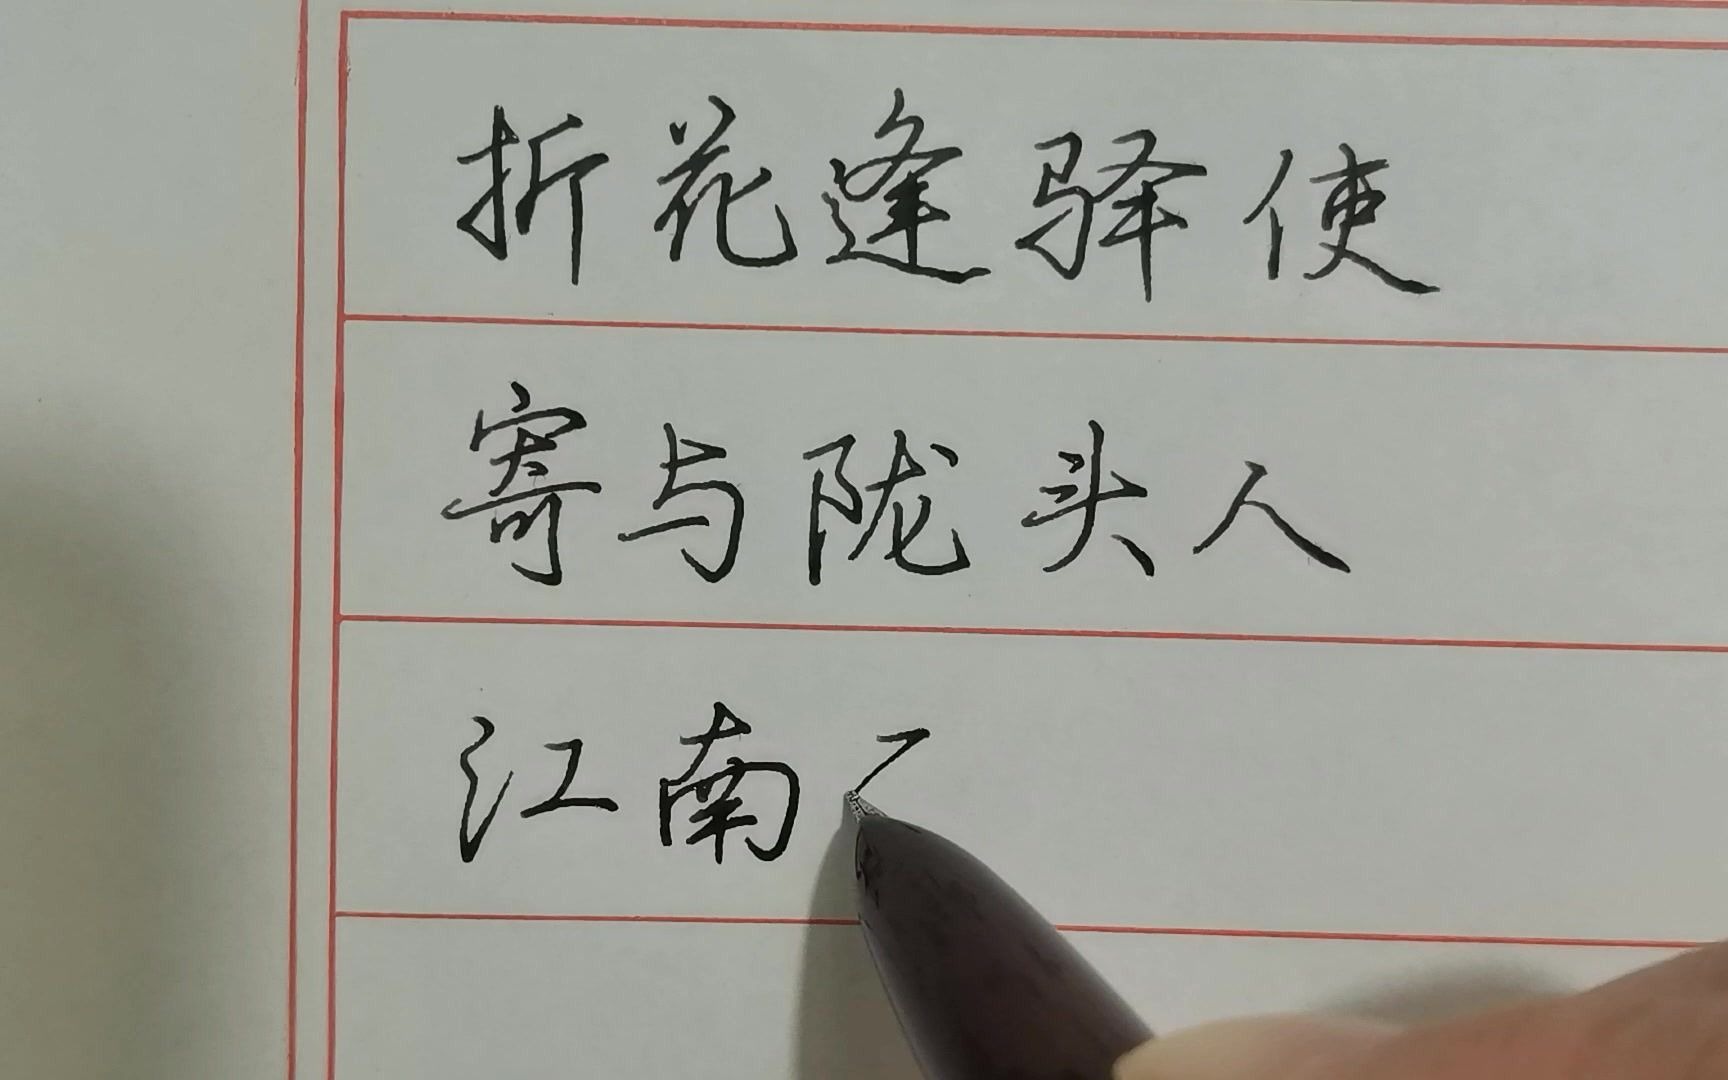 折花逢驿使
寄与陇头人
江南